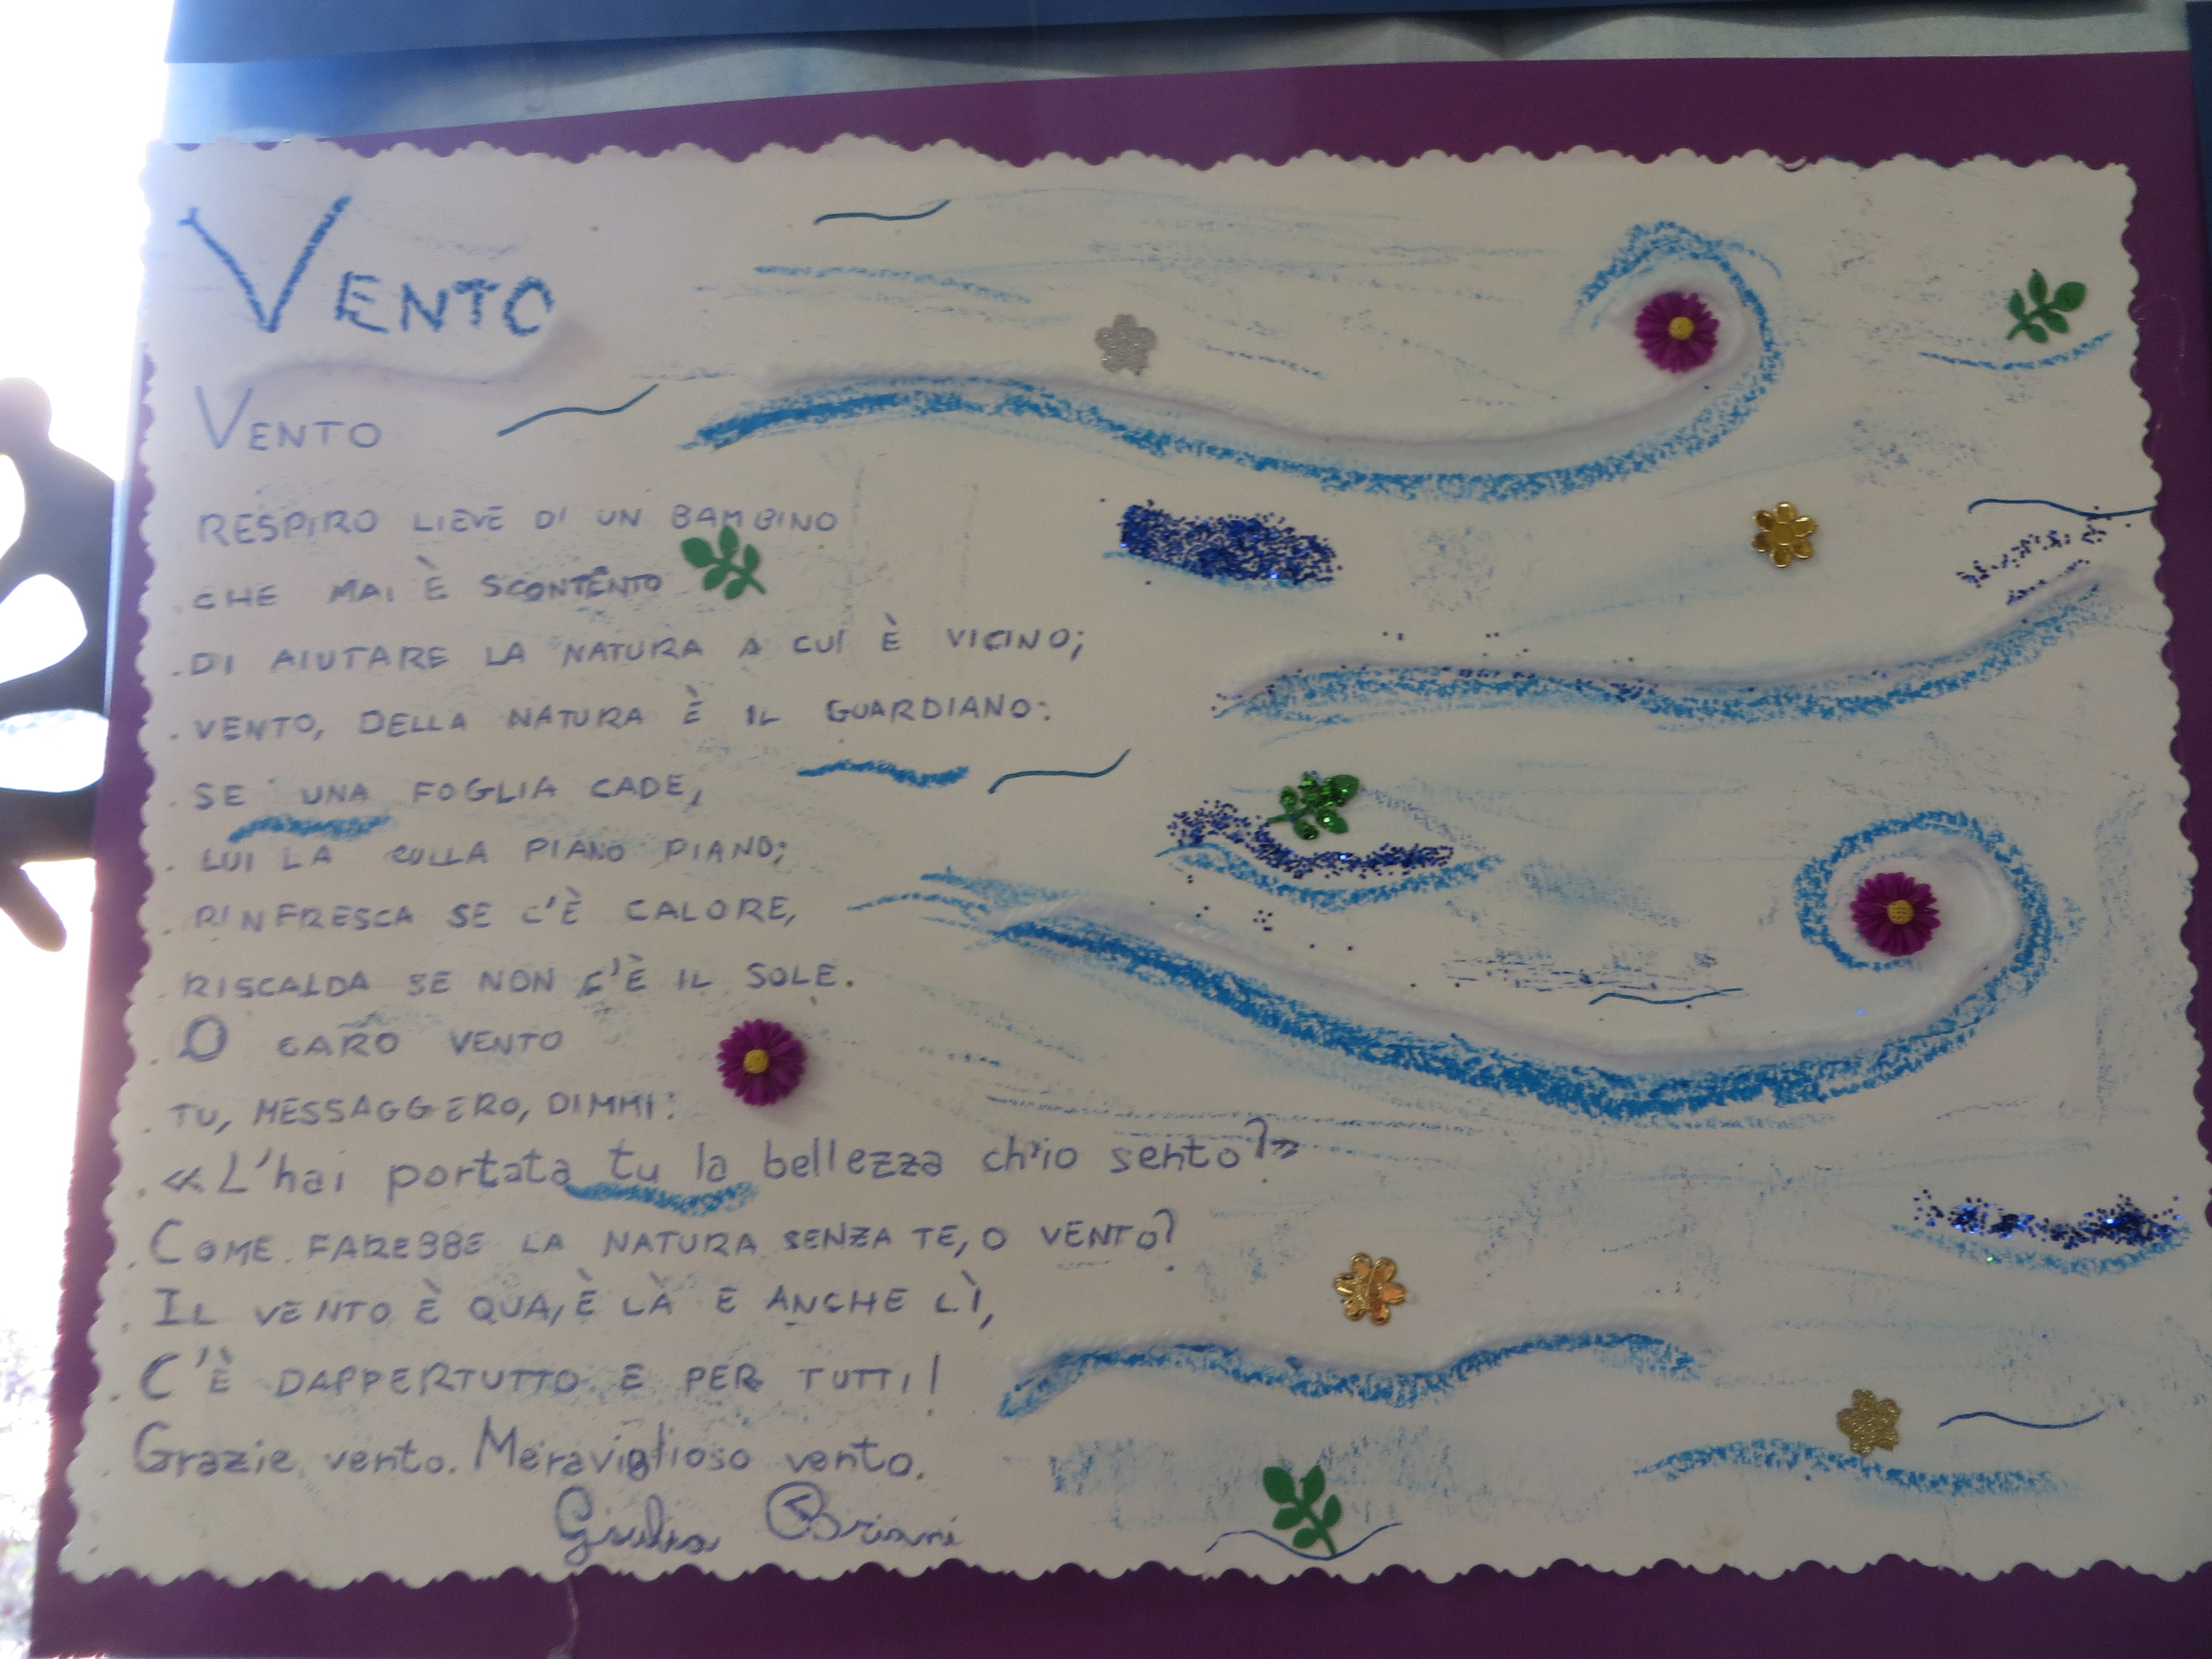 VENTO
VENTO
RESPIRO LIEVE DI UN BAMBINO
CHE MAI È SCONTENTO
DI AIUTARE LA NATURA A CUI È VICINO;
VENTO, DELLA NATURA È IL GUARDIANO:
SE UNA FOGLIA CADE,
LUI LA CULLA PIANO PIANO;
RINFRESCA SE C'È CALORE,
RISCALDA SE NON C'È IL SOLE.
O CARO VENTO
TU, MESSAGGERO, DIMMI:
«L'hai portata tu la bellezza ch'io sento?»
COME FAREBBE LA NATURA SENZA TE, O VENTO?
IL VENTO È QUA, È LÀ E ANCHE LÌ,
C'È DAPPERTUTTO E PER TUTTI!
Grazie vento. Meraviglioso vento.
Giulia Briani